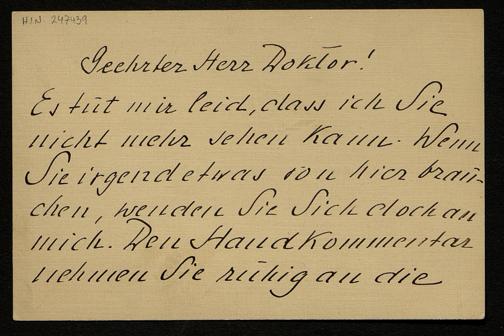 H.I.N. 247439
Geehrter Herr Doktor!
Es tut mir leid, dass ich Sie
nicht mehr sehen kann. Wenn
Sie irgend etwas von hier brau-
chen, wenden Sie Sich doch an
mich. Den Handkommentar
nehmen Sie ruhig an die